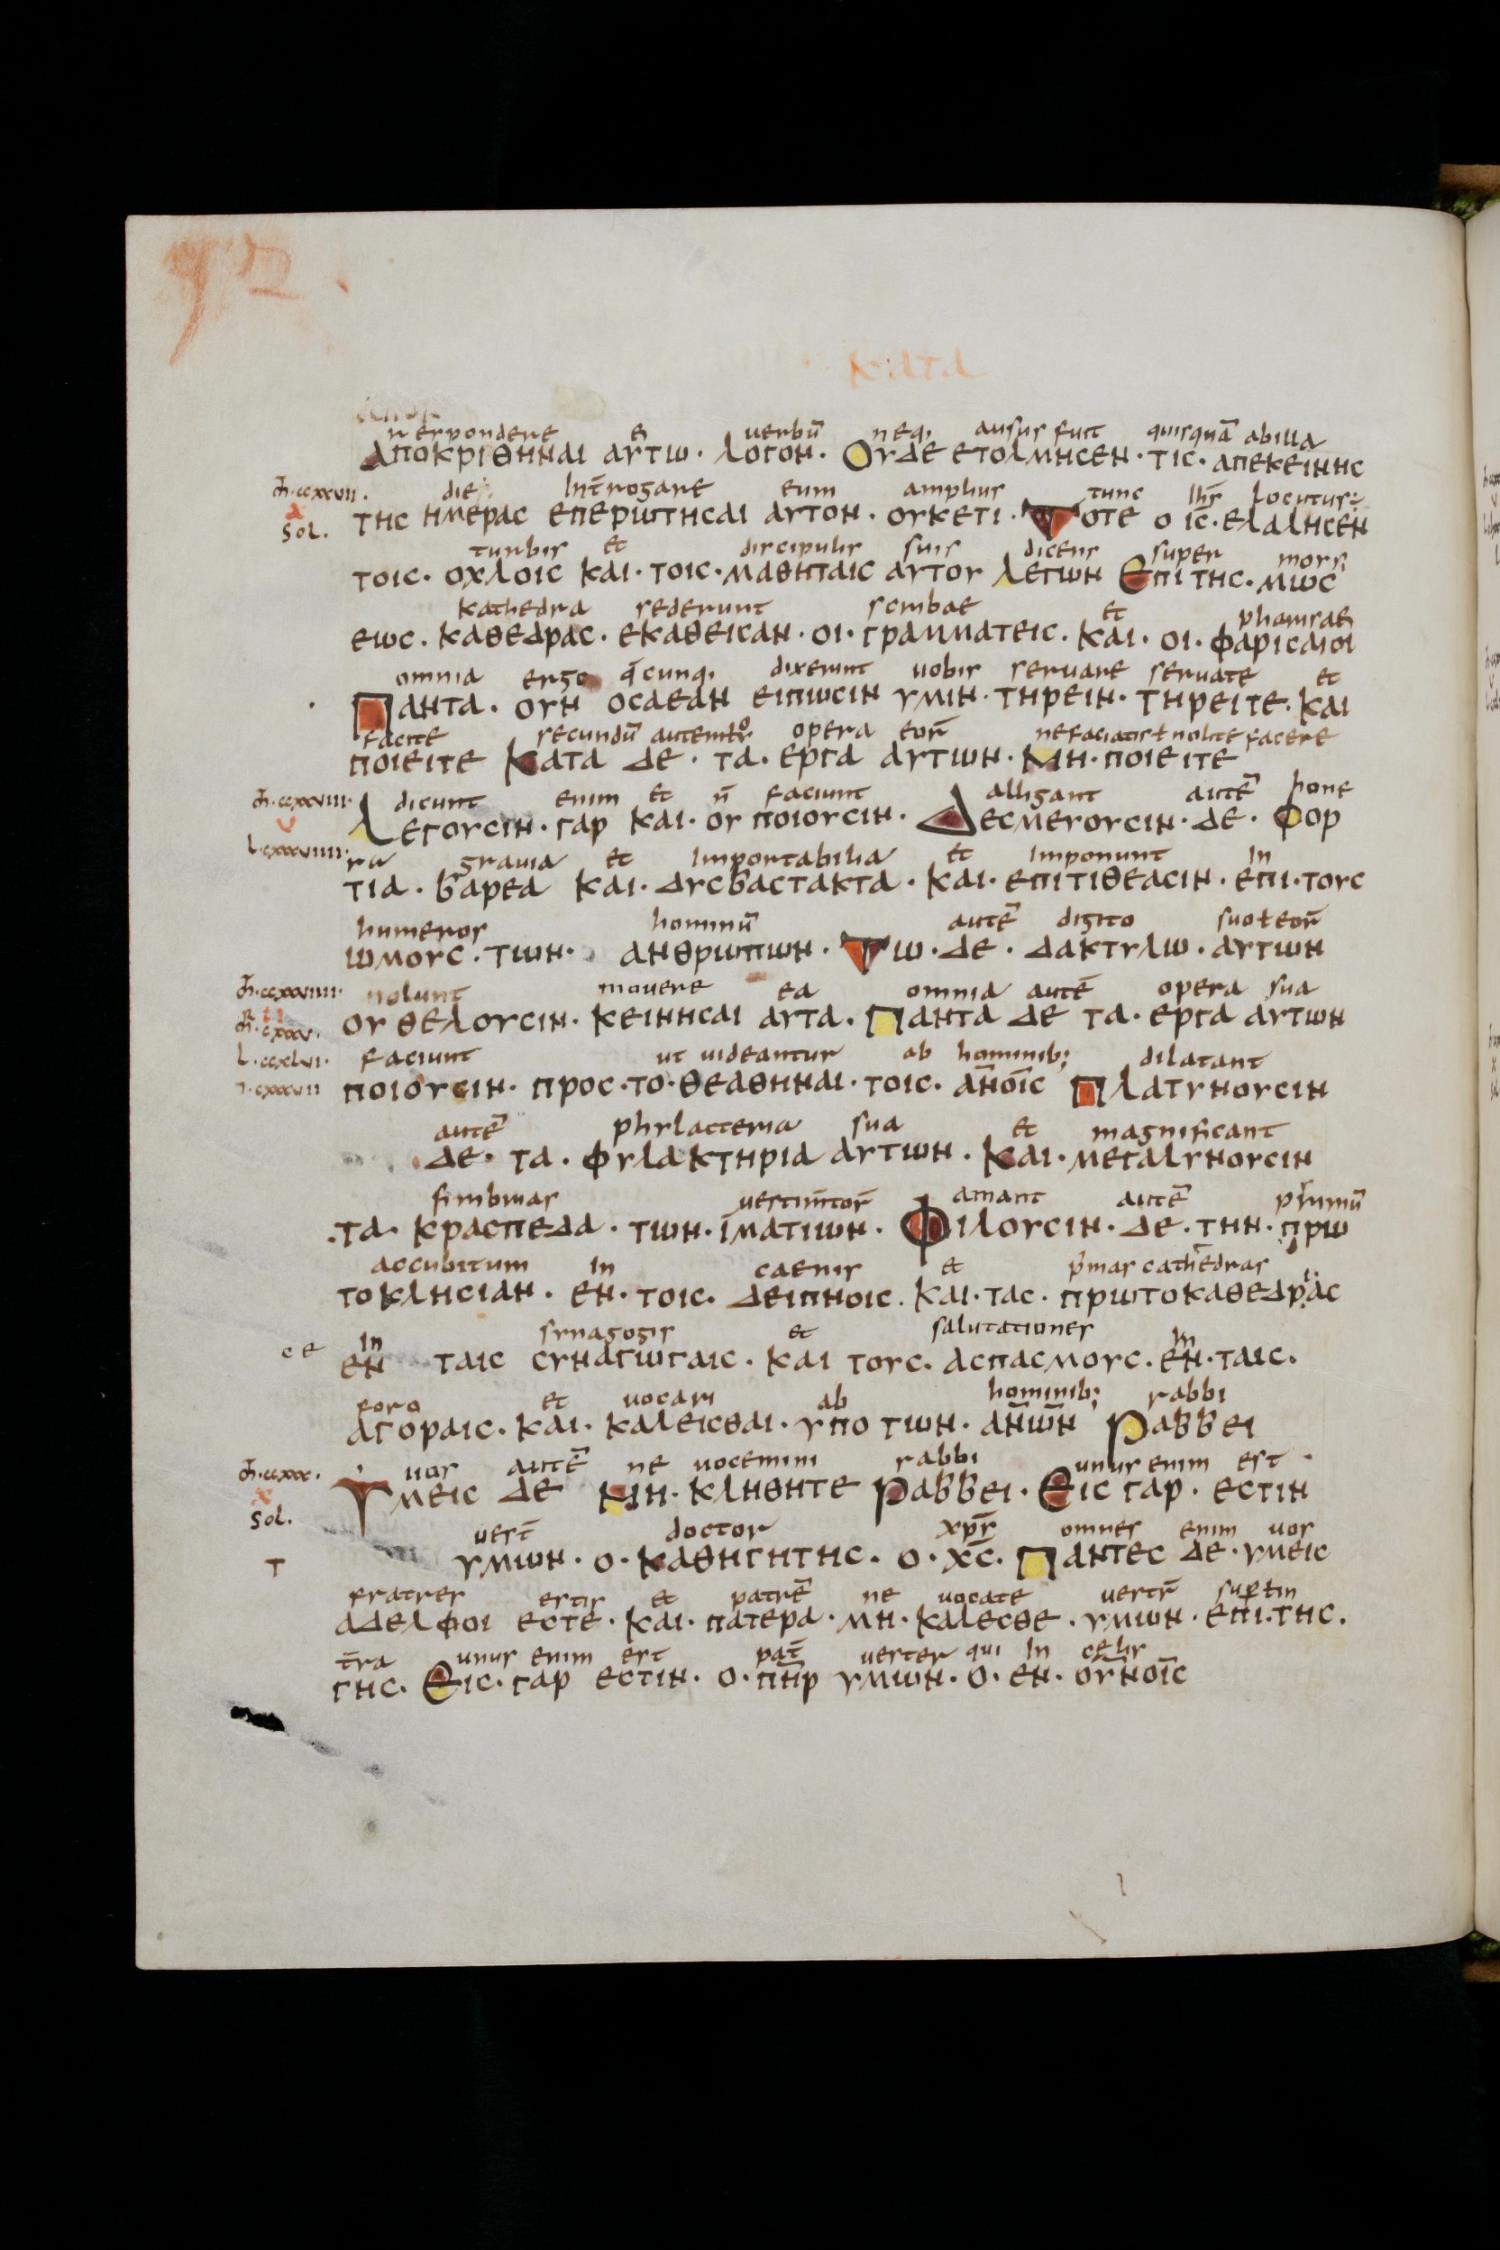 92
κατα
respondere ei uerbū neq; ausus fuit quisquā abilla
αποκριθηναι αυτω · λογον · Ουδε ετολμησεν · τις · απεκεινης
m̄·ccxxvii· die Int̄rogare eum amplius tunc ih̄s locutus
x της ημερας επερωτησαι αυτον · ουκετι · Τοτε ο ιc̄ · ελαλησεν
Sol. turbis et discipulis suis dicens super mosi
τοις · οχλοις και · τοις · μαθηταις αυτου λεγων Επι της · μως
kathedra sederunt scribae et pharisaei
εως · καθεδρας · εκαθεισαν · οι · γραμματεις · και · οι · φαρισαιοι
omnia ergo q̄cunq; dixerint uobis seruare seruate et
Παντα · ουν οσαεαν ειπωσιν υμιν · τηρειν · τηρειτε · και
facite secundū opera eor̄ nefaciatis ł nolite facere
ποιειτε Κατα δε · τα · εργα αυτων · μη · ποιειτε
m̄·ccxxviii· dicunt enim et n̄ faciunt alligant autē pone
v Λεγουσιν · γαρ και · ου ποιουσιν · Δεσμευουσιν · δε · Φορ
l·cxxxviiii· ra grauia et Importabilia et Imponunt In
τια · βαρεα και · δυσβαστακτα · και · επιτιθεασιν · επι · τους
humeros hominū autē digito suo ł eor̄
ωμους · των · ανθρωπων · Τω · δε · δακτυλω · αυτων
m̄·ccxxviiii· nolunt mouere ea omnia autē opera sua
ου θελουσιν · κεινησαι αυτα · Παντα δε τα · εργα αυτων
l·ccxlvi· faciunt ut uideantur ab hominib; dilatant
ποιουσιν · προς · το · θεαθηναι · τοις · αν̄οῑς Πλατυνουσιν
autē phylacteria sua et magnificant
δε · τα · φυλακτηρια αυτων · Και · μεγαλυνουσιν
fimbrias uestim̄tor̄ amant autē primū
· τα · κρασπεδα · των · ιματιων · Φιλουσιν · δε · την · πρω
accubitum In caenis et p̄mas cathedras
τοκλησιαν · εν · τοις · δειπνοις · και · τας · πρωτοκαθεδρας
ce In synagogis et salutationes In
εν ταις συναγωγαις · και τους · ασπασμους · εν · ταις ·
foro et uocari ab hominib; rabbi
αγοραις · και · καλεισθαι · υπο των · αν̄ων̄ Ραββει
m̄·ccxxx· uos autē ne uocemini rabbi unus enim est
x Υμεις δε μη · κληθητε Ραββει · Εις γαρ · εστιν
Sol. uest̄ doctor xpr̄ omnes enim uos
T υμων · ο · καθηγητης · ο · χc̄ · Παντες δε · υμεις
fratres estis et patrē ne uocate uestr̄ sup̄ ł in
αδελφοι εστε · και · πατερα · μη · καλεσθε · υμων · επι · της ·
t̄ra unus enim est pat̄ uester qui In celis
γης · Εις · γαρ εστιν · ο · πηρ̄ υμων · ο · εν · ουν̄οῑς